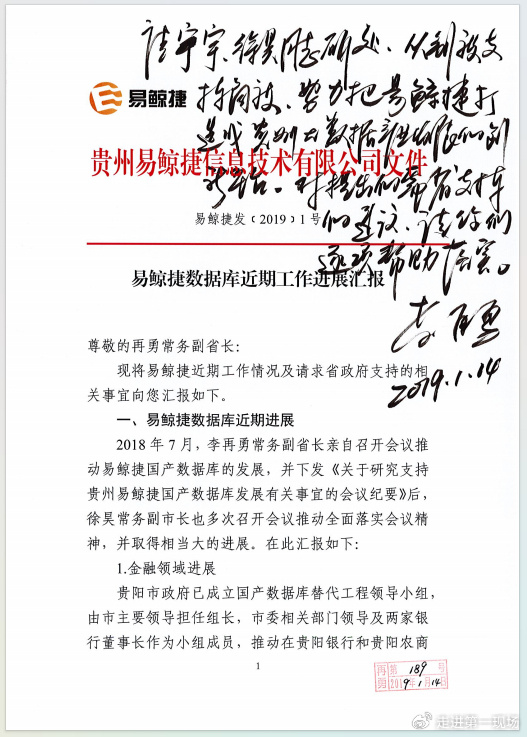 请宇宗、徐昊同志研处。从制设支
持角度、努力把易鲸捷打
造成贵州大数据产业发展的创
新平台。对提出的需省支持
的建议,请给们
逐项帮助落实。
李再勇
2019.1.14
易鲸捷
贵州易鲸捷信息技术有限公司文件
易鲸捷发〔2019〕1号
易鲸捷数据库近期工作进展汇报
尊敬的再勇常务副省长:
现将易鲸捷近期工作情况及请求省政府支持的相
关事宜向您汇报如下。
一、易鲸捷数据库近期进展
2018年7月,李再勇常务副省长亲自召开会议推
动易鲸捷国产数据库的发展,并下发《关于研究支持
贵州易鲸捷国产数据库发展有关事宜的会议纪要》后,
徐昊常务副市长也多次召开会议推动全面落实会议精
神,并取得相当大的进展。在此汇报如下:
1.金融领域进展
贵阳市政府已成立国产数据库替代工程领导小组,
由市主要领导担任组长,市委相关部门领导及两家银
行董事长作为小组成员,推动在贵阳银行和贵阳农商
1
再勇
第189号
2019年1月14日
走进第一现场